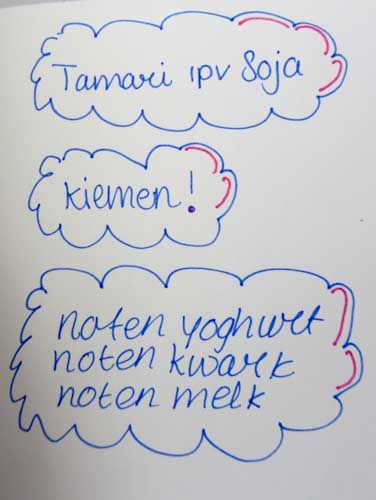 Tamari ipv Soja
kiemen!
noten yoghurt
noten kwark
noten melk